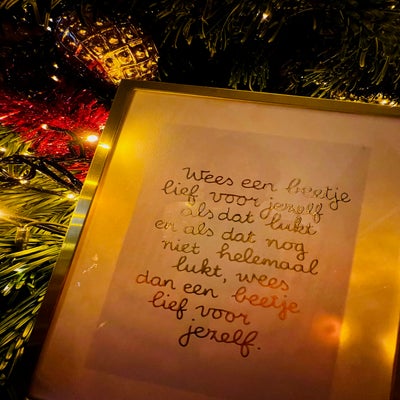 Wees een beetje
lief voor jezelf
als dat lukt
en als dat nog
niet helemaal
lukt, wees
dan een beetje
lief voor
jezelf.